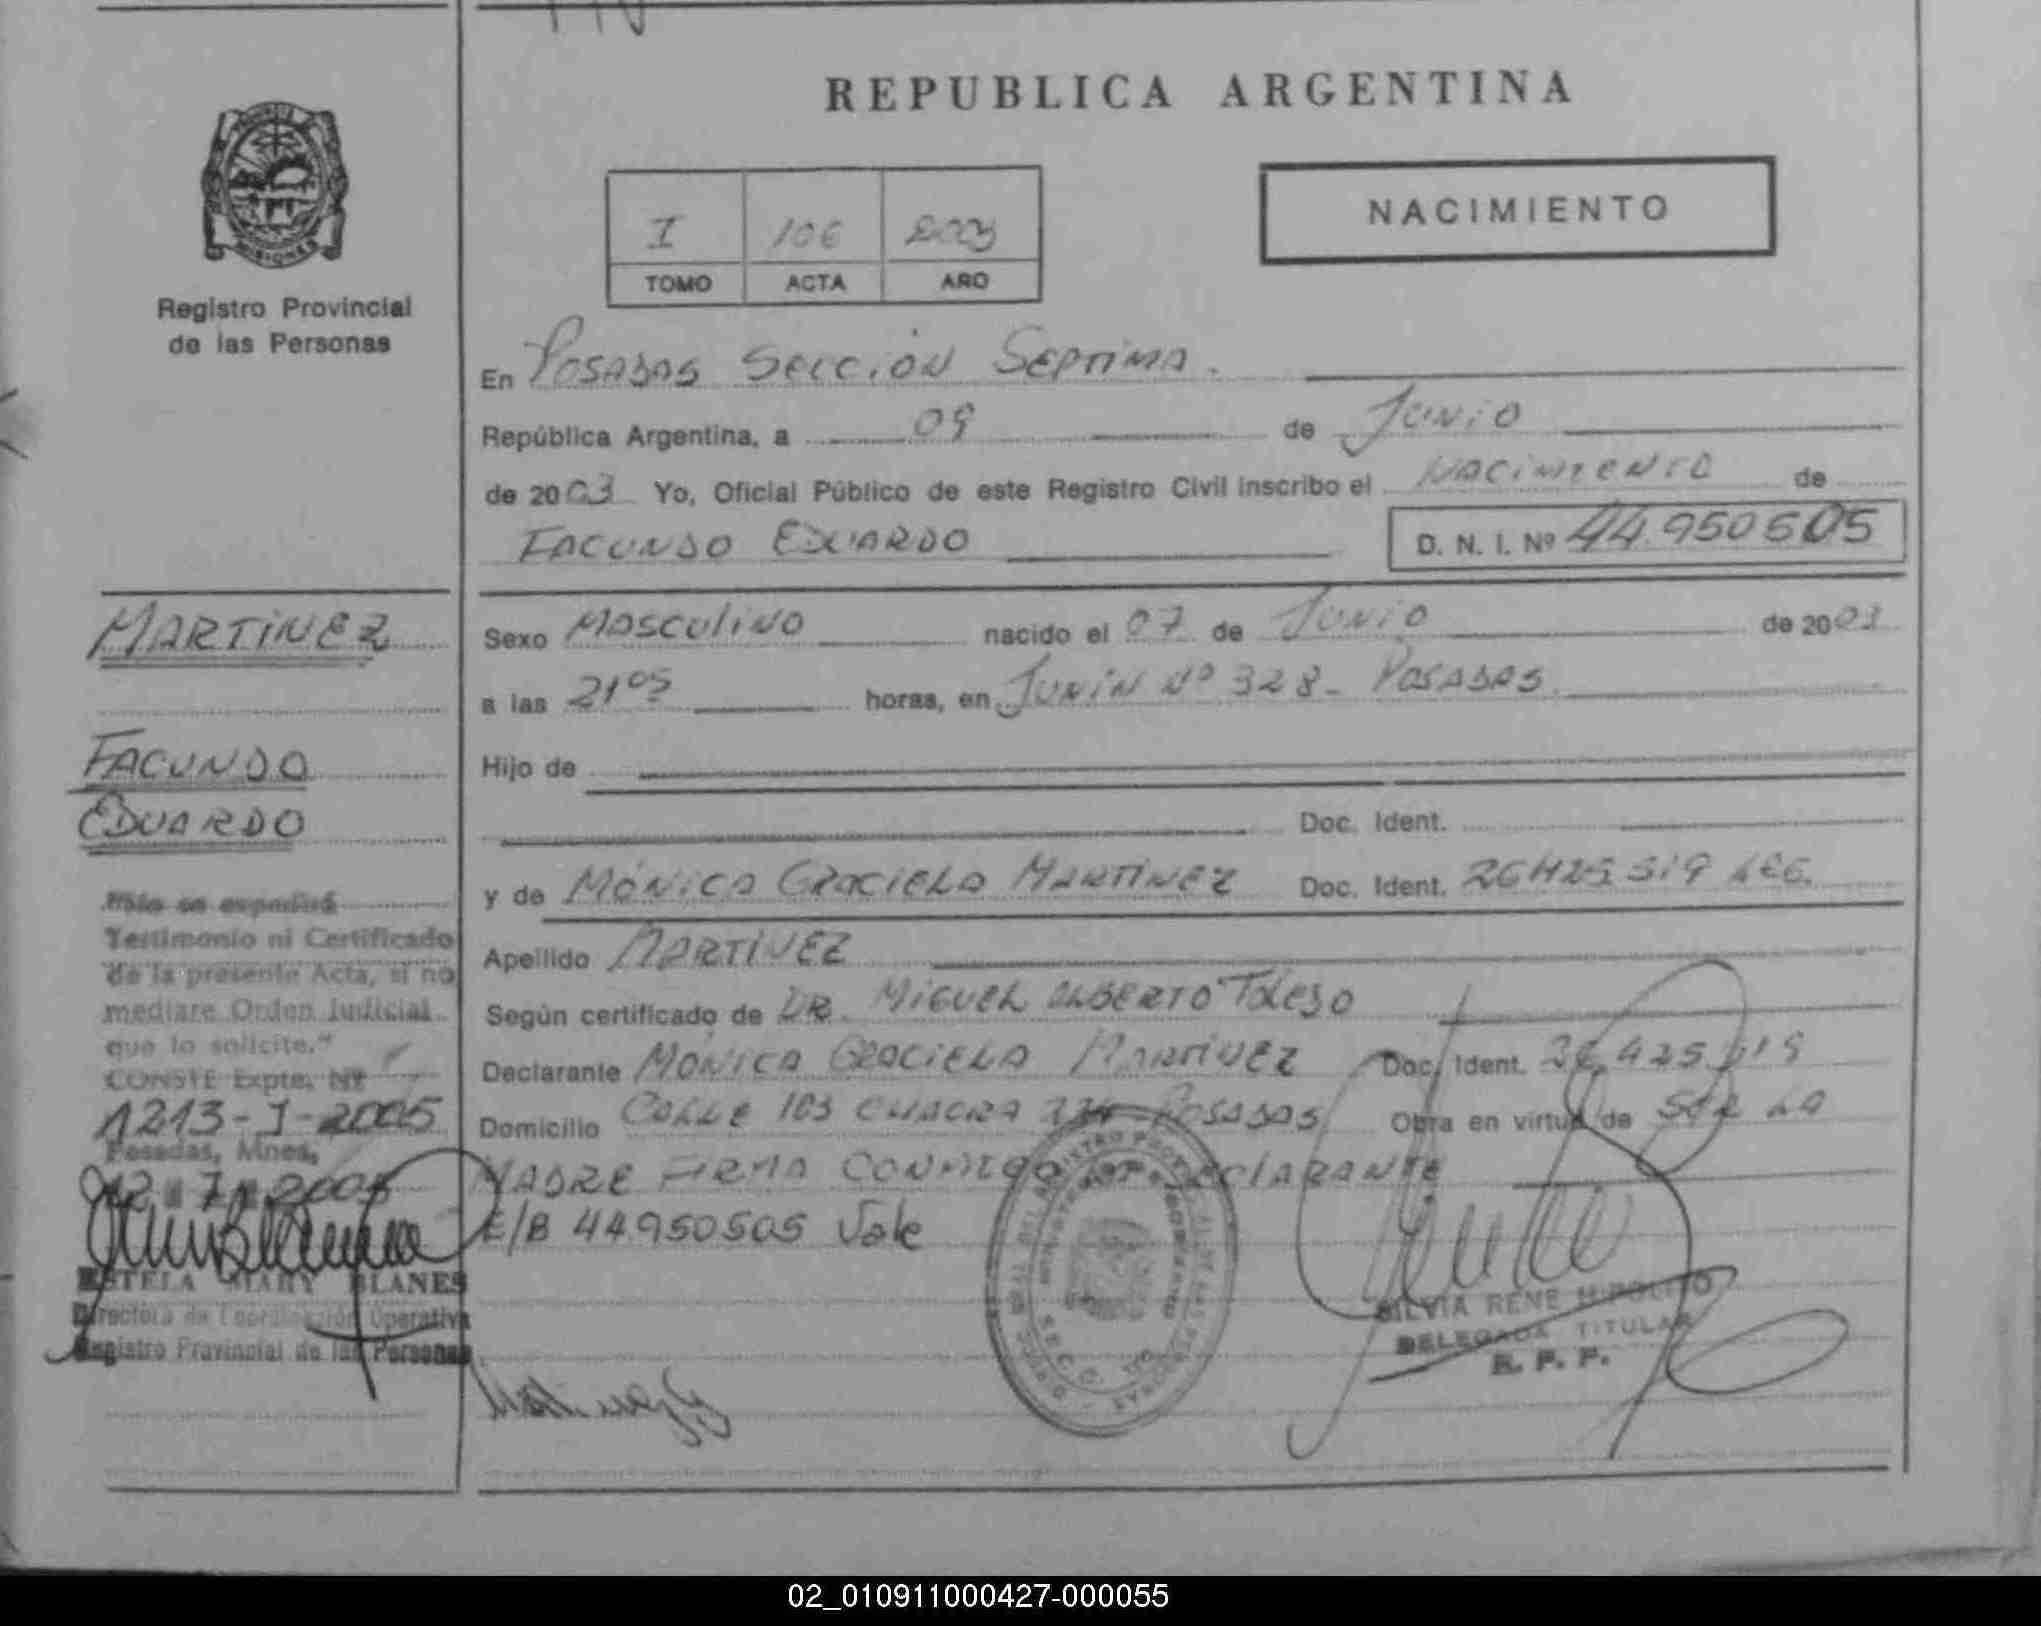 REPUBLICA ARGENTINA
MISIONES
Registro Provincial
de las Personas
I 106 2003
TOMO ACTA AÑO
NACIMIENTO
En POSADAS SECCION SEPTIMA.
República Argentina, a 09 de JUNIO
de 2003 Yo, Oficial Público de este Registro Civil inscribo el NACIMIENTO de
FACUNDO EDUARDO D. N. I. Nº 44.950505
MARTINEZ
FACUNDO
EDUARDO
Sexo MASCULINO nacido el 07 de JUNIO de 2003
a las 21 05 horas, en JUNIN Nº 328- POSADAS
Hijo de
Doc. Ident.
y de MÓNICA GRACIELA MARTINEZ Doc. Ident. 26425519
Apellido MARTINEZ
Según certificado de DR. MIGUEL ALBERTO TOLEDO
Declarante MONICA GRACIELA MARTINEZ Doc. Ident. 26.425.519
Domicilio CALLE 103 CHACRA POSADAS Obra en virtud de SER LA
MADRE FIRMA CONMIGO DECLARANTE
E/B 44950505 Vale
No se expedirá
Testimonio ni Certificado
de la presente Acta, si no
mediare Orden Judicial
que lo solicite."
CONSTE Expte. Nº
1213-I-2005
Posadas, Mnes,
ESTELA MARY BLANES
Directora de Coordinación Operativa
Registro Provincial de las Personas
SILVIA RENE HIPOLITO
DELEGADA TITULAR
R. P. P.
02_010911000427-000055